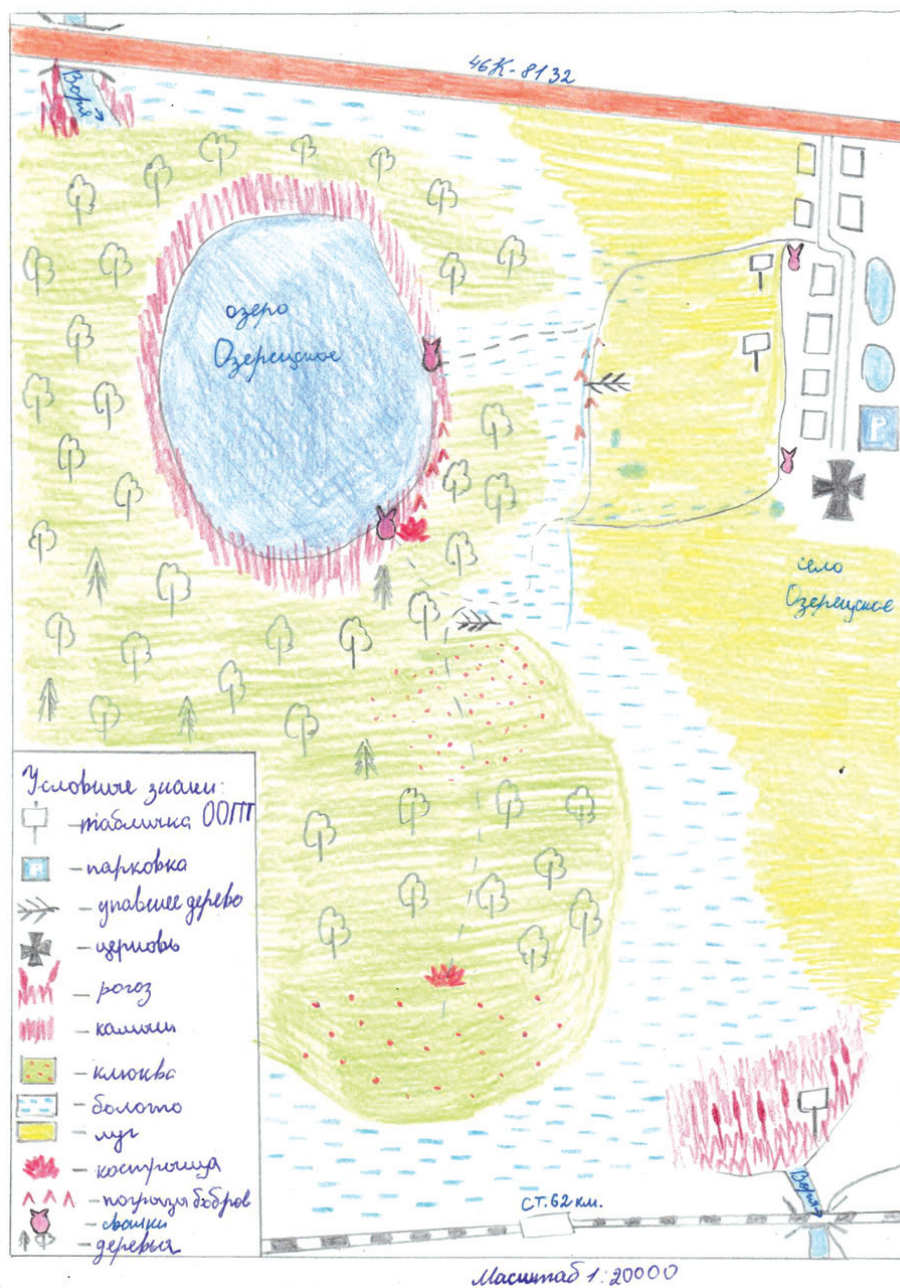 46К-8132
Воря
озеро
Озерецкое
P
село
Озерецкое
Условные знаки:
-табличка ООПТ
P
-парковка
-упавшее дерево
-церковь
-рогоз
-камыш
-клюква
-болото
-луг
-кострища
-погрызы бобров
-свалки
-деревья
Воря
СТ.62 км.
Масштаб 1:20000